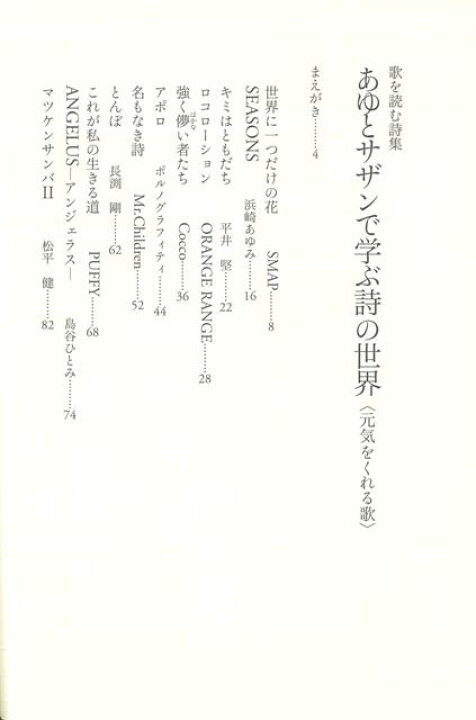 歌を読む詩集
あゆとサザンで学ぶ詩の世界〈元気をくれる歌〉
まえがき………4
世界に一つだけの花 SMAP………8
SEASONS 浜崎あゆみ………16
キミはともだち 平井 堅………22
ロコローション ORANGE RANGE………28
強く儚い者たち Cocco………36
はかな
アポロ ポルノグラフィティ………44
名もなき詩 Mr.Children………52
とんぼ 長渕 剛………62
これが私の生きる道 PUFFY………68
ANGELUS―アンジェラス― 島谷ひとみ………74
マツケンサンバII 松平 健………82